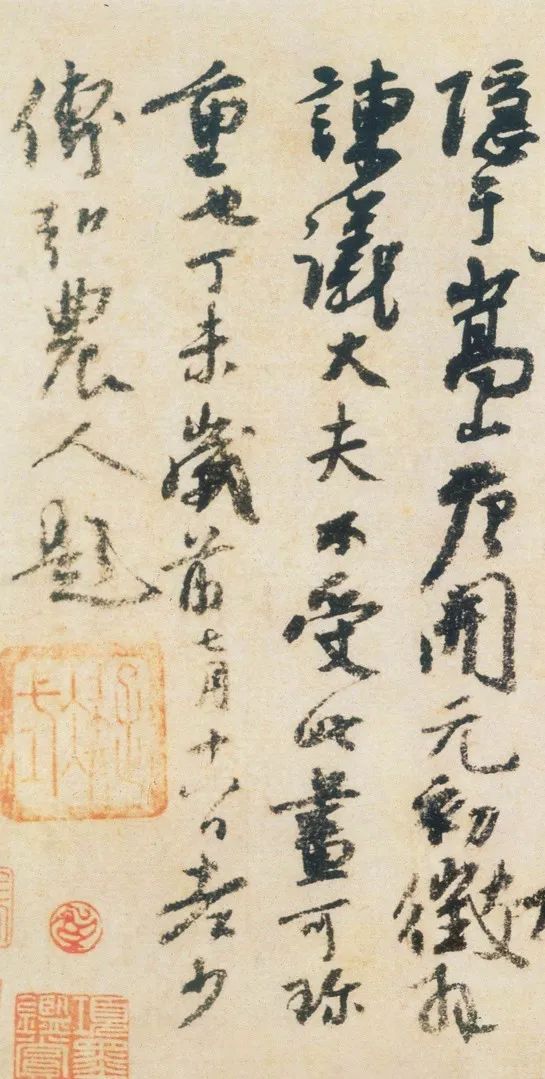 隱于嵩山唐開元初徵拜
諫議大夫不受此畫可珎
重也丁未歲前七月十八日老少
傅弘農人題